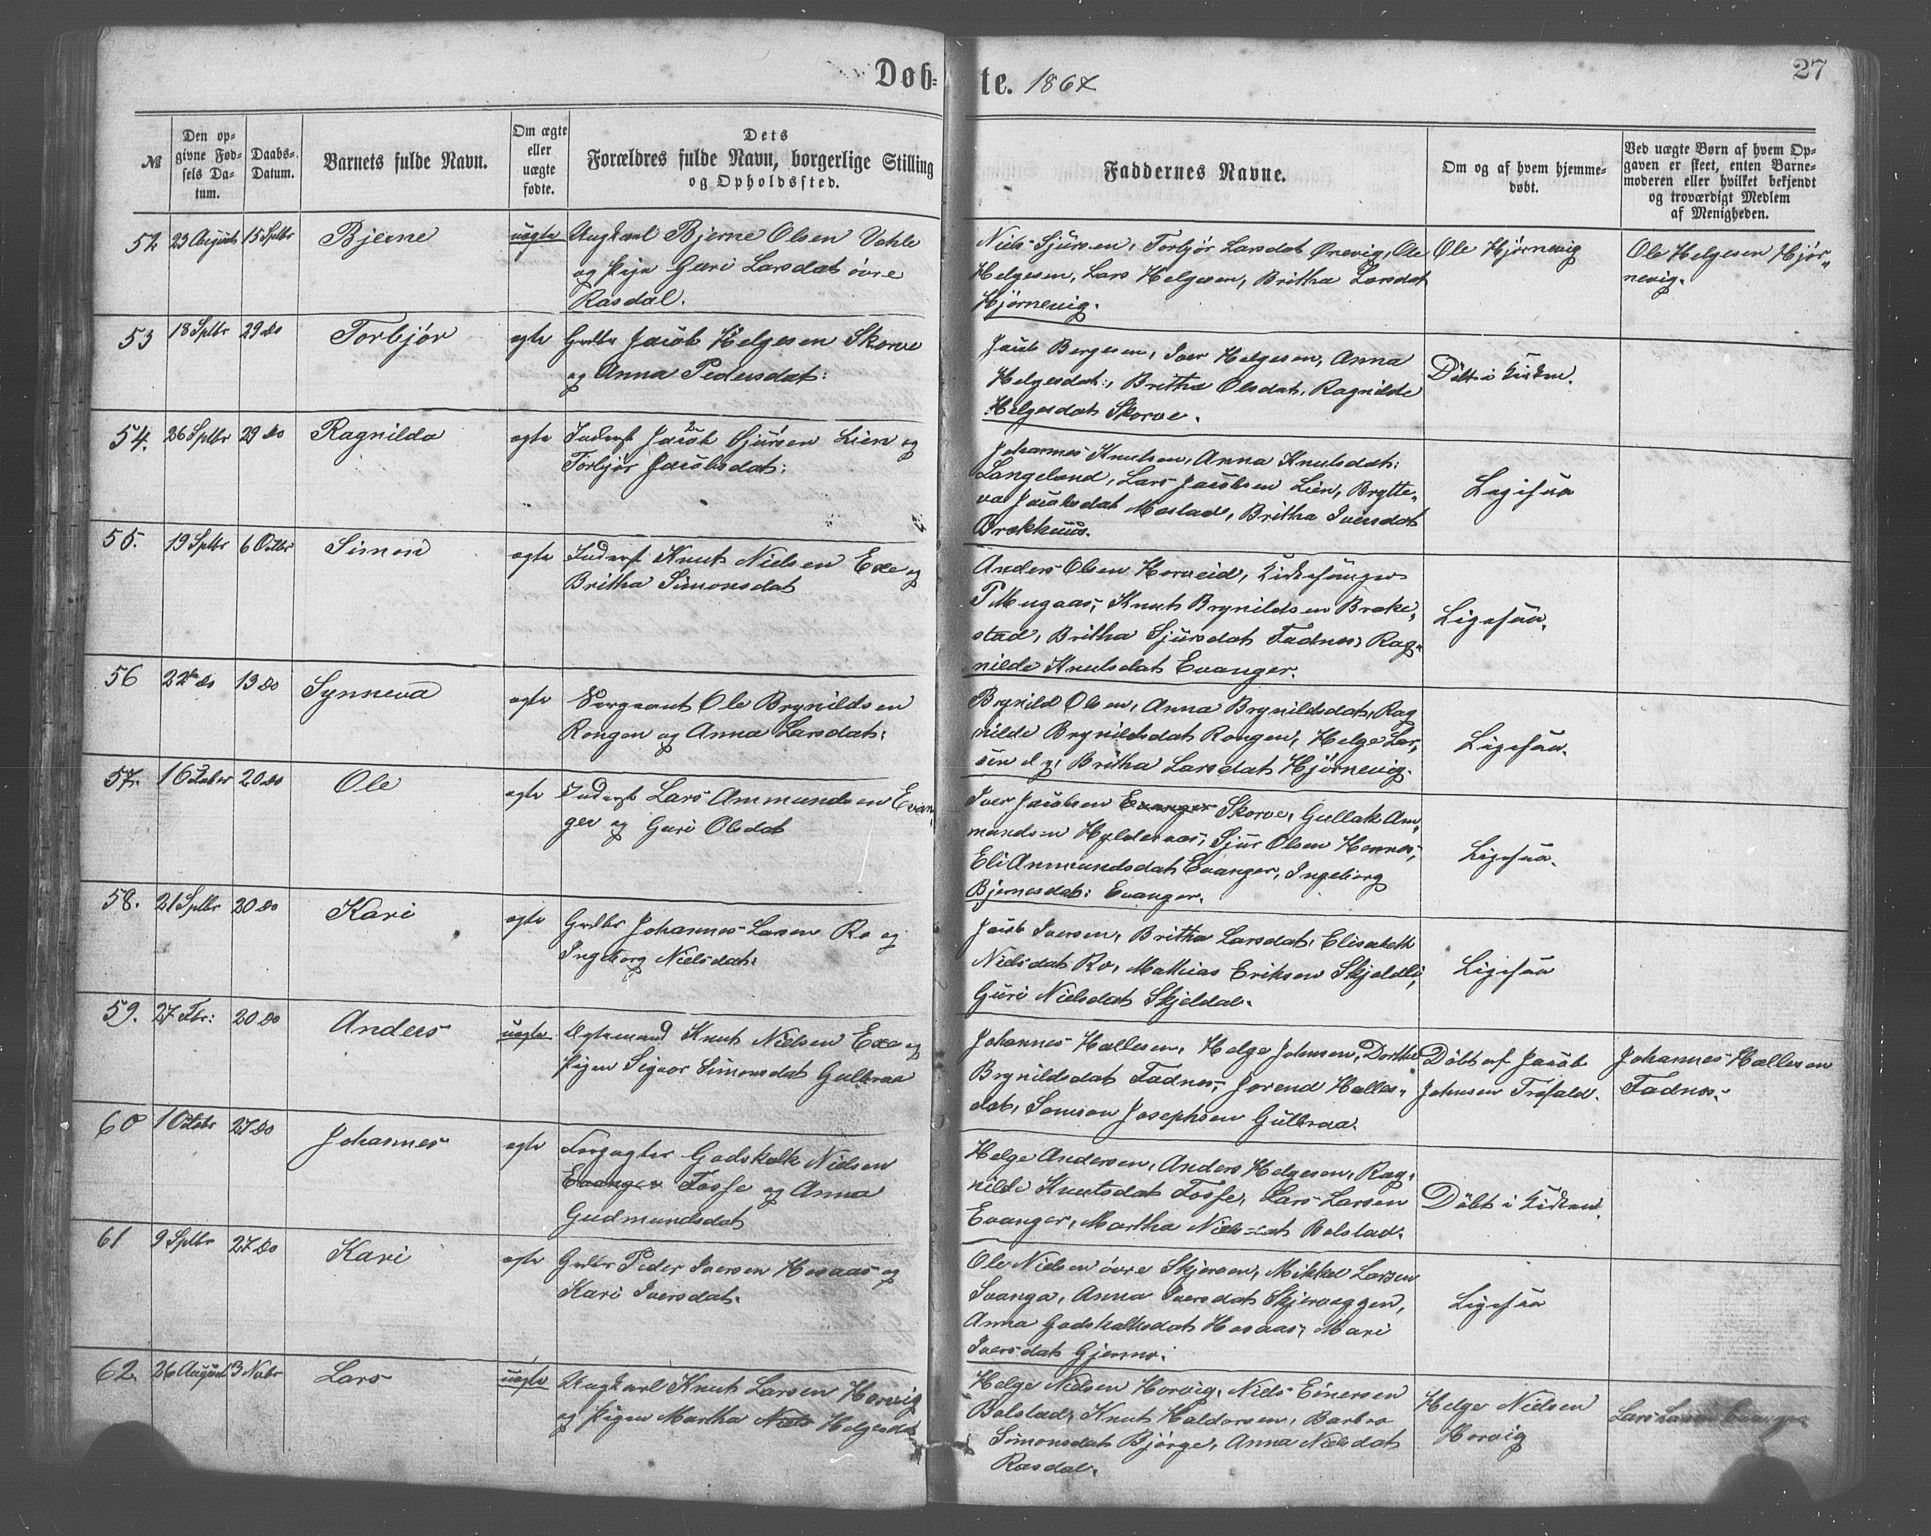 Døb-
te. 1867
27
№
Den op-
givne Fød-
sels Da-
tum.
Daabs-
Datum.
Barnets fulde Navn.
Om ægte
eller
uægte
fødte.
Dets
Forældres fulde Navn, borgerlige Stilling
og Opholdssted.
Faddernes Navne.
Om og af hvem hjemme-
døbt.
Ved uægte Børn af hvem Op-
gaven er skeet, enten Barne-
moderen eller hvilket bekjendt
og troværdigt Medlem
af Menigheden.
52 23 August 15 Septbr Bjerne uægte Ungkarl Bjerne Olsen Væhle
og Pige Guri Larsdat øvre
Rasdal.
Niels Sjursen, Torbjør Larsdat Ørevig, Ole
Helgesen, Lars Helgesen, Britha Larsdat
Hjørnevig.
Ole Hjørnevig
Ole Helgesen Hjør-
nevig.
53 18 Septbr 29 Do Torbjør ægte Grdbr Jacob Helgesen Skorve
og Anna Pedersdat:
Jacob Bergesen, Iver Helgesen, Anna
Helgesdat:, Britha Olsdat, Ragnilde
Helgesdat Skorve.
Döbt i Kirken.
54. 26 Septbr 29 Do Ragnilda ægte Inderst Jacob Sjursen Lien og
Torbjør Jacobsdat:
Johannes Knutsen, Anna Knutsdat:
Langeland, Lars Jacobsen Lien, Brytte-
va Jacobsdat Mestad, Britha Iversdat
Brækhuus.
Ligesaa
55. 19 Septbr 6 Octbr Simon ægte Inderst Knut Nielsen Exe og
Britha Simonsdat
Anders Olsen Horveid, Kirkesanger
P Mugaas, Knut Brynildsen Brake-
stad, Britha Sjursdat Fadnes, Rag-
nilde Knutsdat Evanger.
Ligesaa.
56 22de Do 13 Do Synneva ægte Sergeant Ole Brynildsen
Rongen og Anna Larsdat:
Brynild Olsen, Anna Brynildsdat, Rag
nilde Brynildsdat Rongen, Helge Lar-
sen d y, Britha Larsdat Hjørnevig.
Ligesaa.
57. 1 October 20 Do Ole ægte Inderst Lars Ammundsen Evan-
ger og Guri Olsdat
Iver Jacobsen Evanger Skorve, Gullak Am-
mundsen Hyldenæs, Sjur Olsen Hernes,
Eli Ammundsdat Evanger, Ingeborg
Bjernesdat: Evanger.
Ligesaa.
58. 21 Septbr 20 Do Kari ægte Grdbr Johannes Larsen Ro og
Ingeborg Nielsdat:
Jacob Iversen, Britha Larsdat, Elisabeth
Nielsdat Ro, Mathias Eriksen Skjeldli,
Guri Nielsdat Skjeldal.
Ligesaa
59. 27 Fbr: 20 Do Anders uægte Ægtemand Knut Nielsen Exe og
Pigen Signor Simonsdat Gulbraa
Johannes Hallesen, Helge Johnsen, Dorthe
Brynildsdat Fadnes, Jorend Halles-
dat, Samson Josephsen Gulbraa.
Döbt af Jacob
Johnsen Trefald.
Johannes Hallesen
Fadnes.
60 1 Octobr 27 Do Johannes ægte Forpagter Godskalk Nielsen
Evanger Fosse og Anna
Gudmundsdat
Helge Andersen, Anders Helgesen, Rag-
nilde Knutsdat Fosse, Lars Larsen
Evanger, Martha Nielsdat Bolstad.
Döbt i Kirken.
61 9 Septbr 27 Do Kari ægte Grdbr Peder Iversen Horaas og
Kari Iversdat.
Ole Nielsen øvre Skjersen, Mikkel Larsen
Svanga, Anna Iversdat Skjerveggen,
Anna Godskalksdat Horaas, Mari
Iversdat Gjerme.
Ligesaa
62. 26 August 3 Nvbr Lars uægte Ungkarl Knut Larsen Horvig
og Pigen Martha Niels Helgesdat
Helge Nielsen Horvig, Niels Einersen
Bolstad, Knut Haldorsen, Barbro
Simonsdat Bjørge, Anna Nielsdat
Rasdal.
Helge Nielsen
Horvig
Lars Larsen Evanger